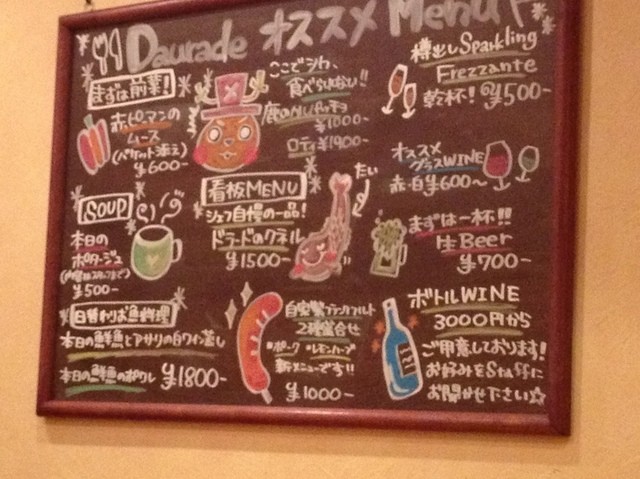 Daurade オススメ Menu
まずは前菜!
赤ピーマンの
ムース
(バケット添え)
¥600-
ここでシカ、
食べられない!!
鹿のカルパッチョ
¥1000-
ロティ ¥1900-
樽出しSparkling
Frezzante
乾杯! ¥500-
オススメ
グラスWINE
赤・白 ¥600〜
SOUP
本日の
ポタージュ
¥500-
看板MENU
シェフ自慢の一品!
ドラードのクネル
¥1500-
たい
まずは一杯!!
生Beer
¥700-
日替わりお魚料理
本日の鮮魚とアサリの白ワイン蒸し
本日の鮮魚のポワレ ¥1800-
自家製フランクフルト
2種盛合せ
・ポーク ・レモンハーブ
新メニューです!!
¥1000-
ボトルWINE
3000円から
ご用意しております!
お好みをStaffに
お聞かせ下さい☆